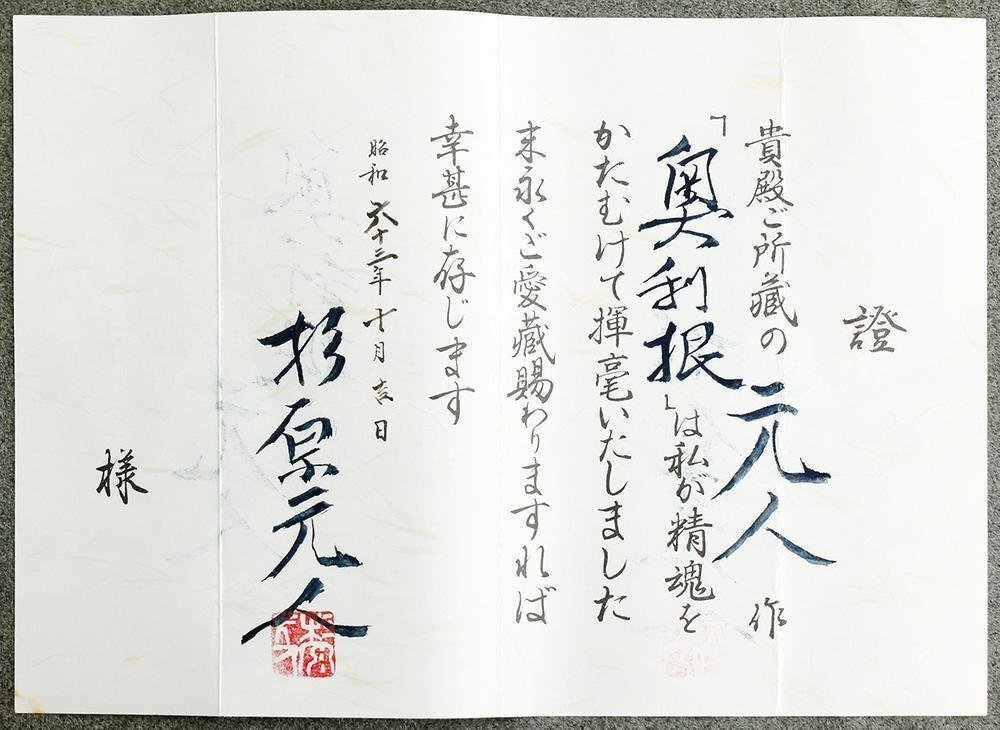 證
貴殿ご所蔵の 元人 作
「奥利根」は私が精魂を
かたむけて揮毫いたしました
末永くご愛蔵賜わりますれば
幸甚に存じます
昭和 六十三年 十月 吉日
杉原元人
様